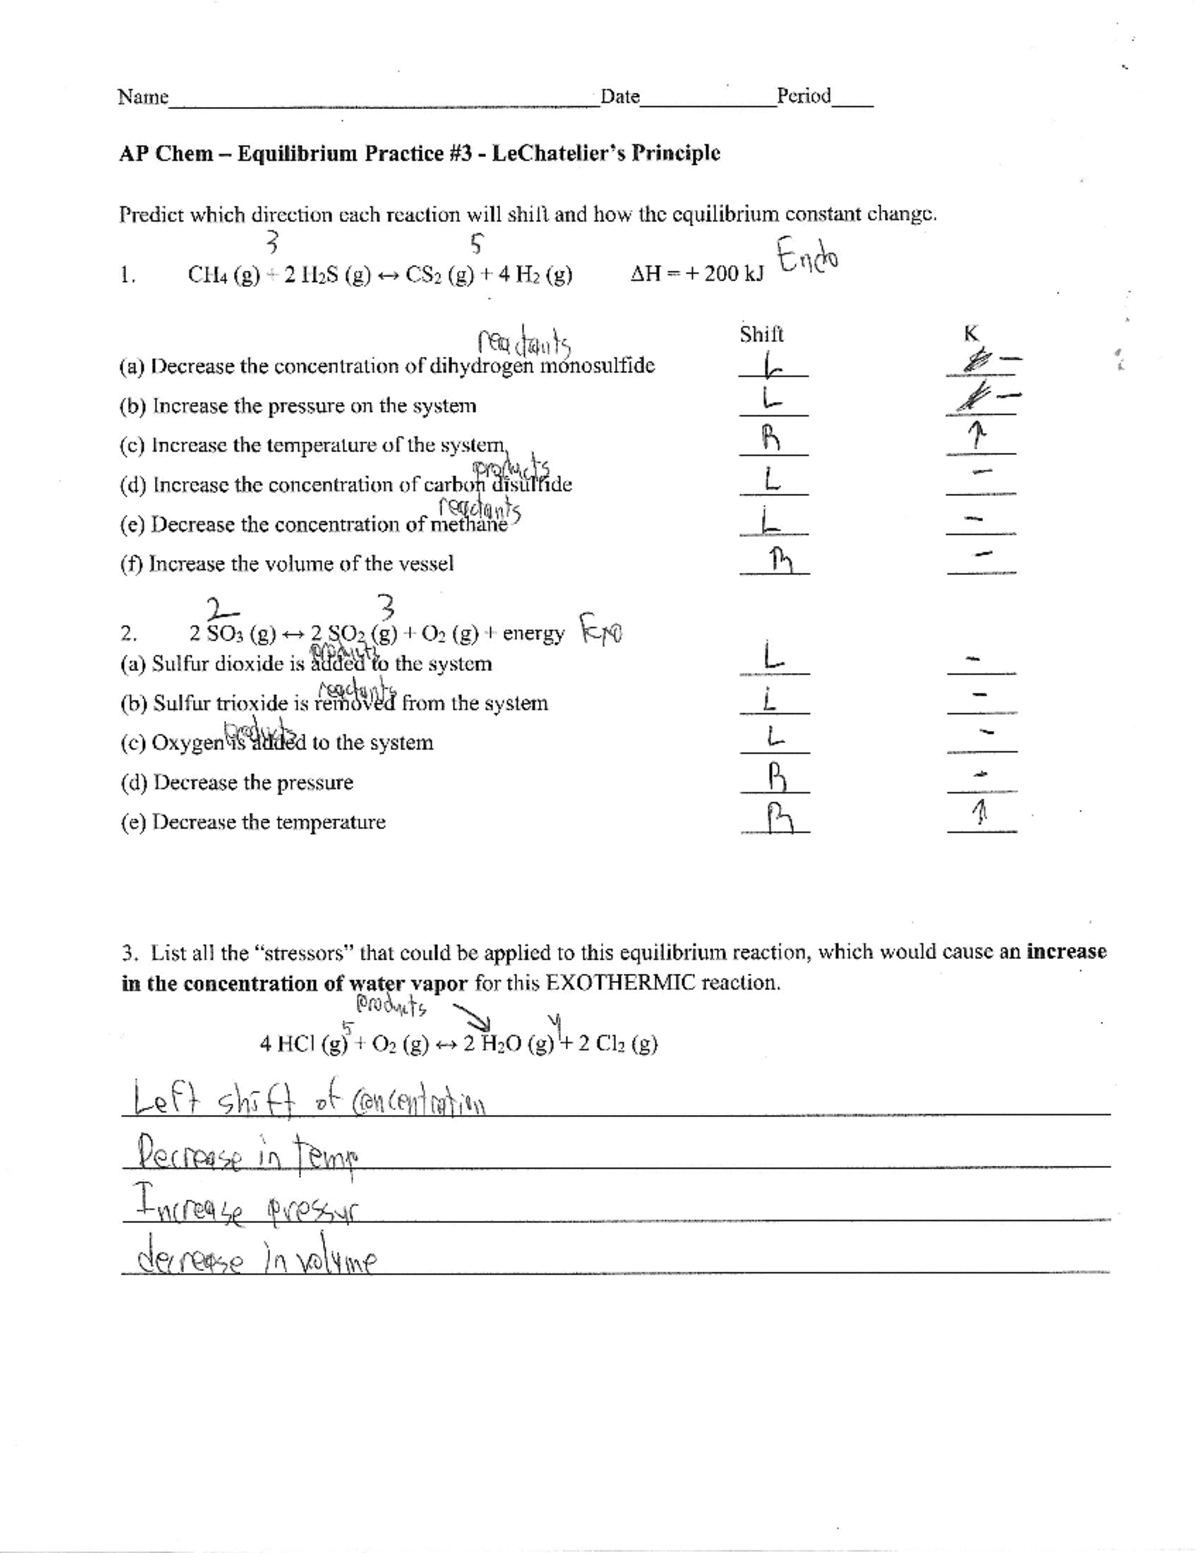 Name Date Period
AP Chem – Equilibrium Practice #3 - LeChatelier's Principle
Predict which direction each reaction will shift and how the equilibrium constant change.
3 5
1. CH4 (g) + 2 H2S (g) ↔ CS2 (g) + 4 H2 (g) ΔH = + 200 kJ Endo
Shift K
reactants
(a) Decrease the concentration of dihydrogen monosulfide L –
(b) Increase the pressure on the system L –
(c) Increase the temperature of the system, R ↑
products
(d) Increase the concentration of carbon disulfide L –
reactants
(e) Decrease the concentration of methane L –
(f) Increase the volume of the vessel R –
2 3
2. 2 SO3 (g) ↔ 2 SO2 (g) + O2 (g) + energy Exo
products
(a) Sulfur dioxide is added to the system L –
reactants
(b) Sulfur trioxide is removed from the system L –
products
(c) Oxygen is added to the system L –
(d) Decrease the pressure R –
(e) Decrease the temperature R ↑
3. List all the “stressors” that could be applied to this equilibrium reaction, which would cause an increase
in the concentration of water vapor for this EXOTHERMIC reaction.
products
5 4
4 HCl (g) + O2 (g) ↔ 2 H2O (g) + 2 Cl2 (g)
Left shift of concentration
Decrease in temp
Increase pressur
decrease in volume